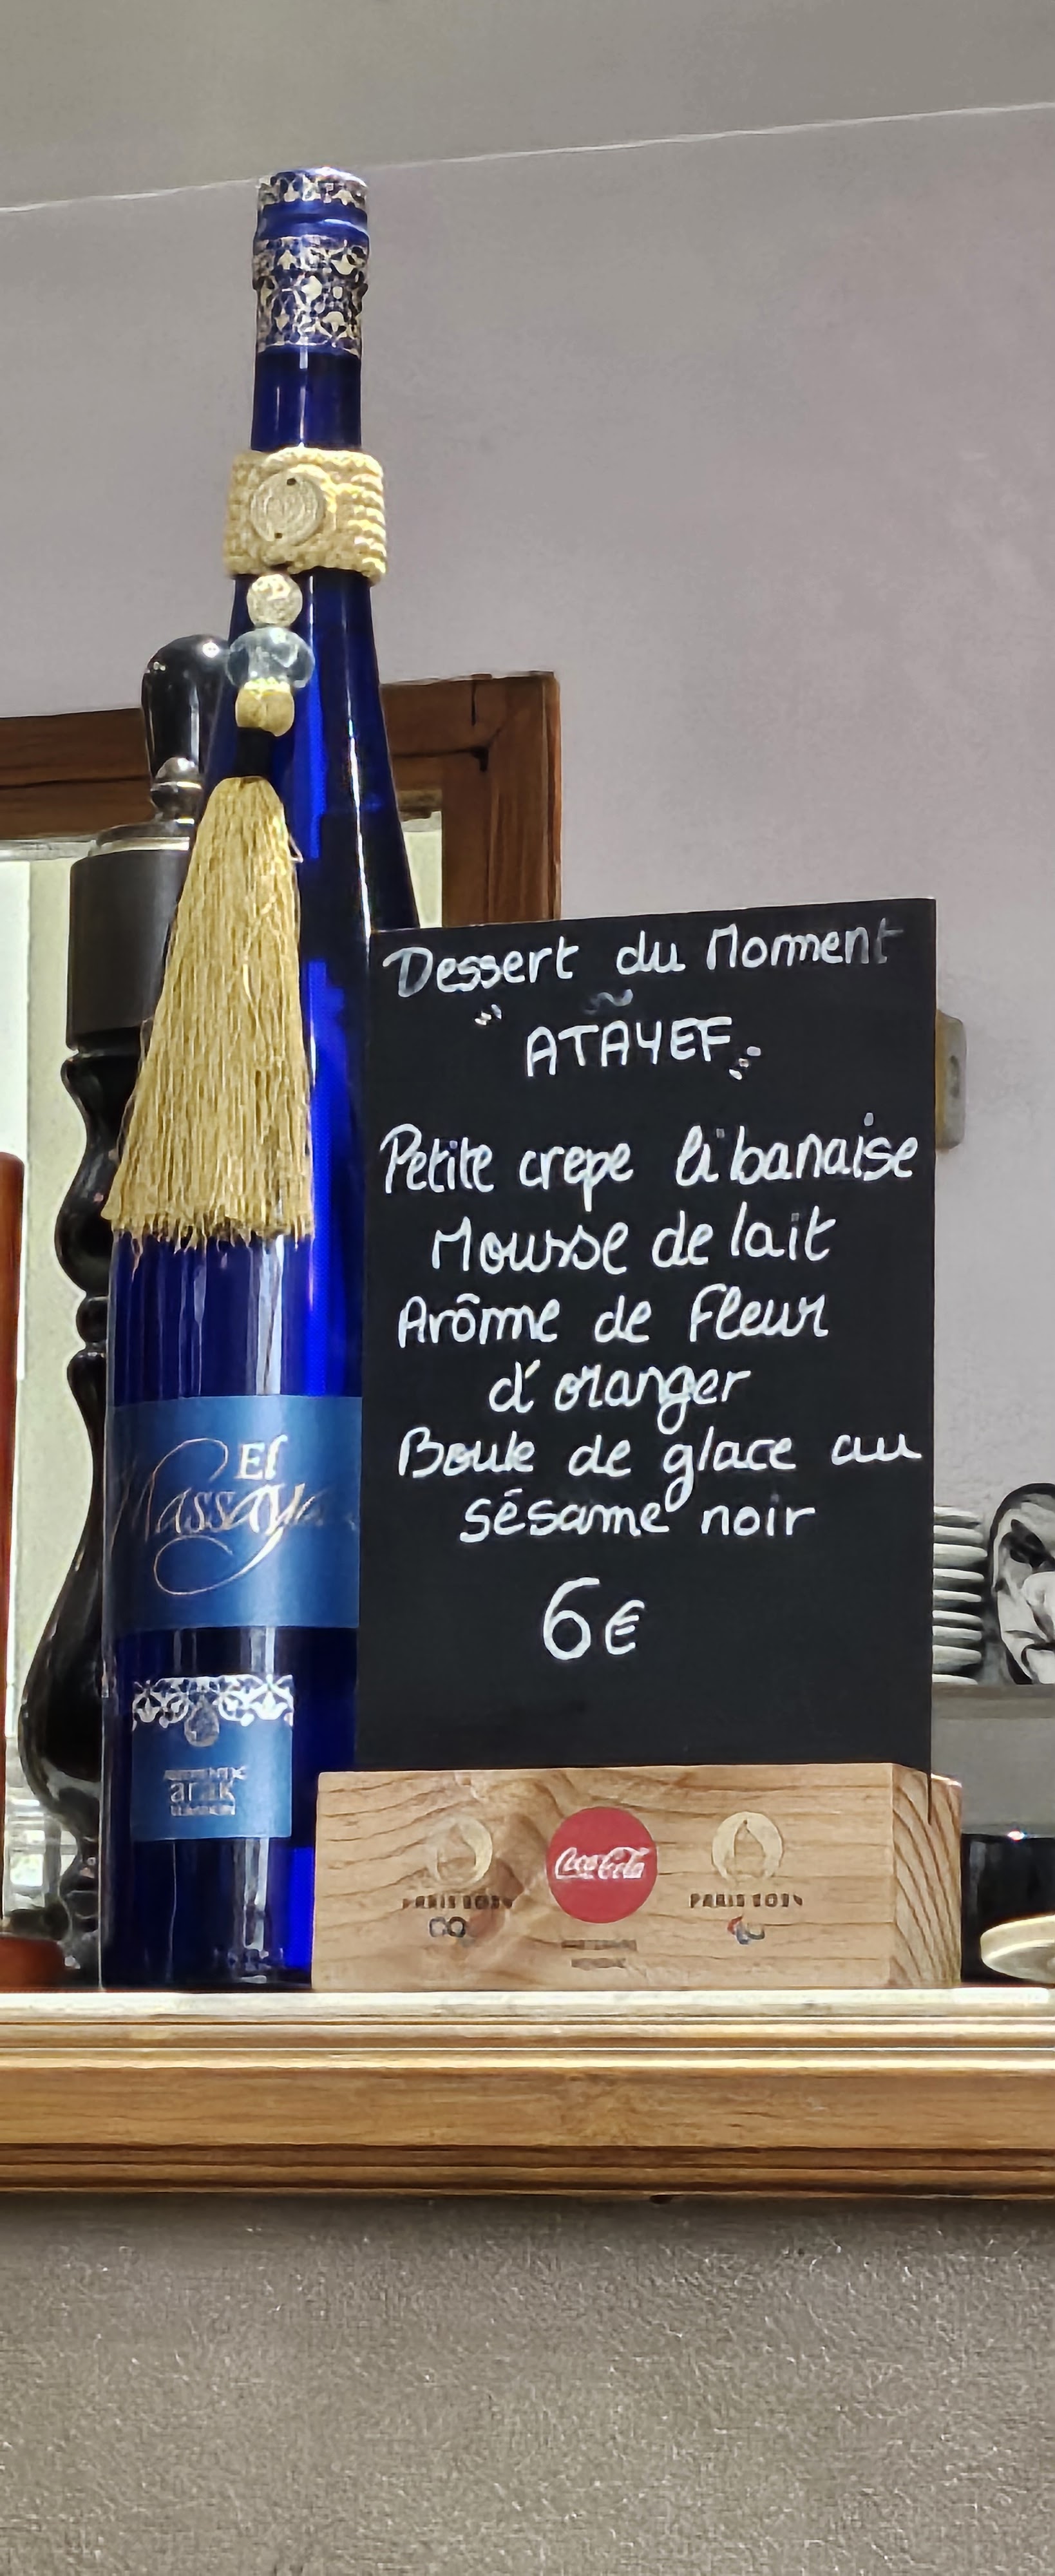 Dessert du Moment
" ATAYEF "
Petite crepe libanaise
Mousse de lait
Arôme de Fleur
d'oranger
Boule de glace au
sésame noir
6€
El
Massaya
arak
Coca-Cola
PARIS 2024
PARIS 2024